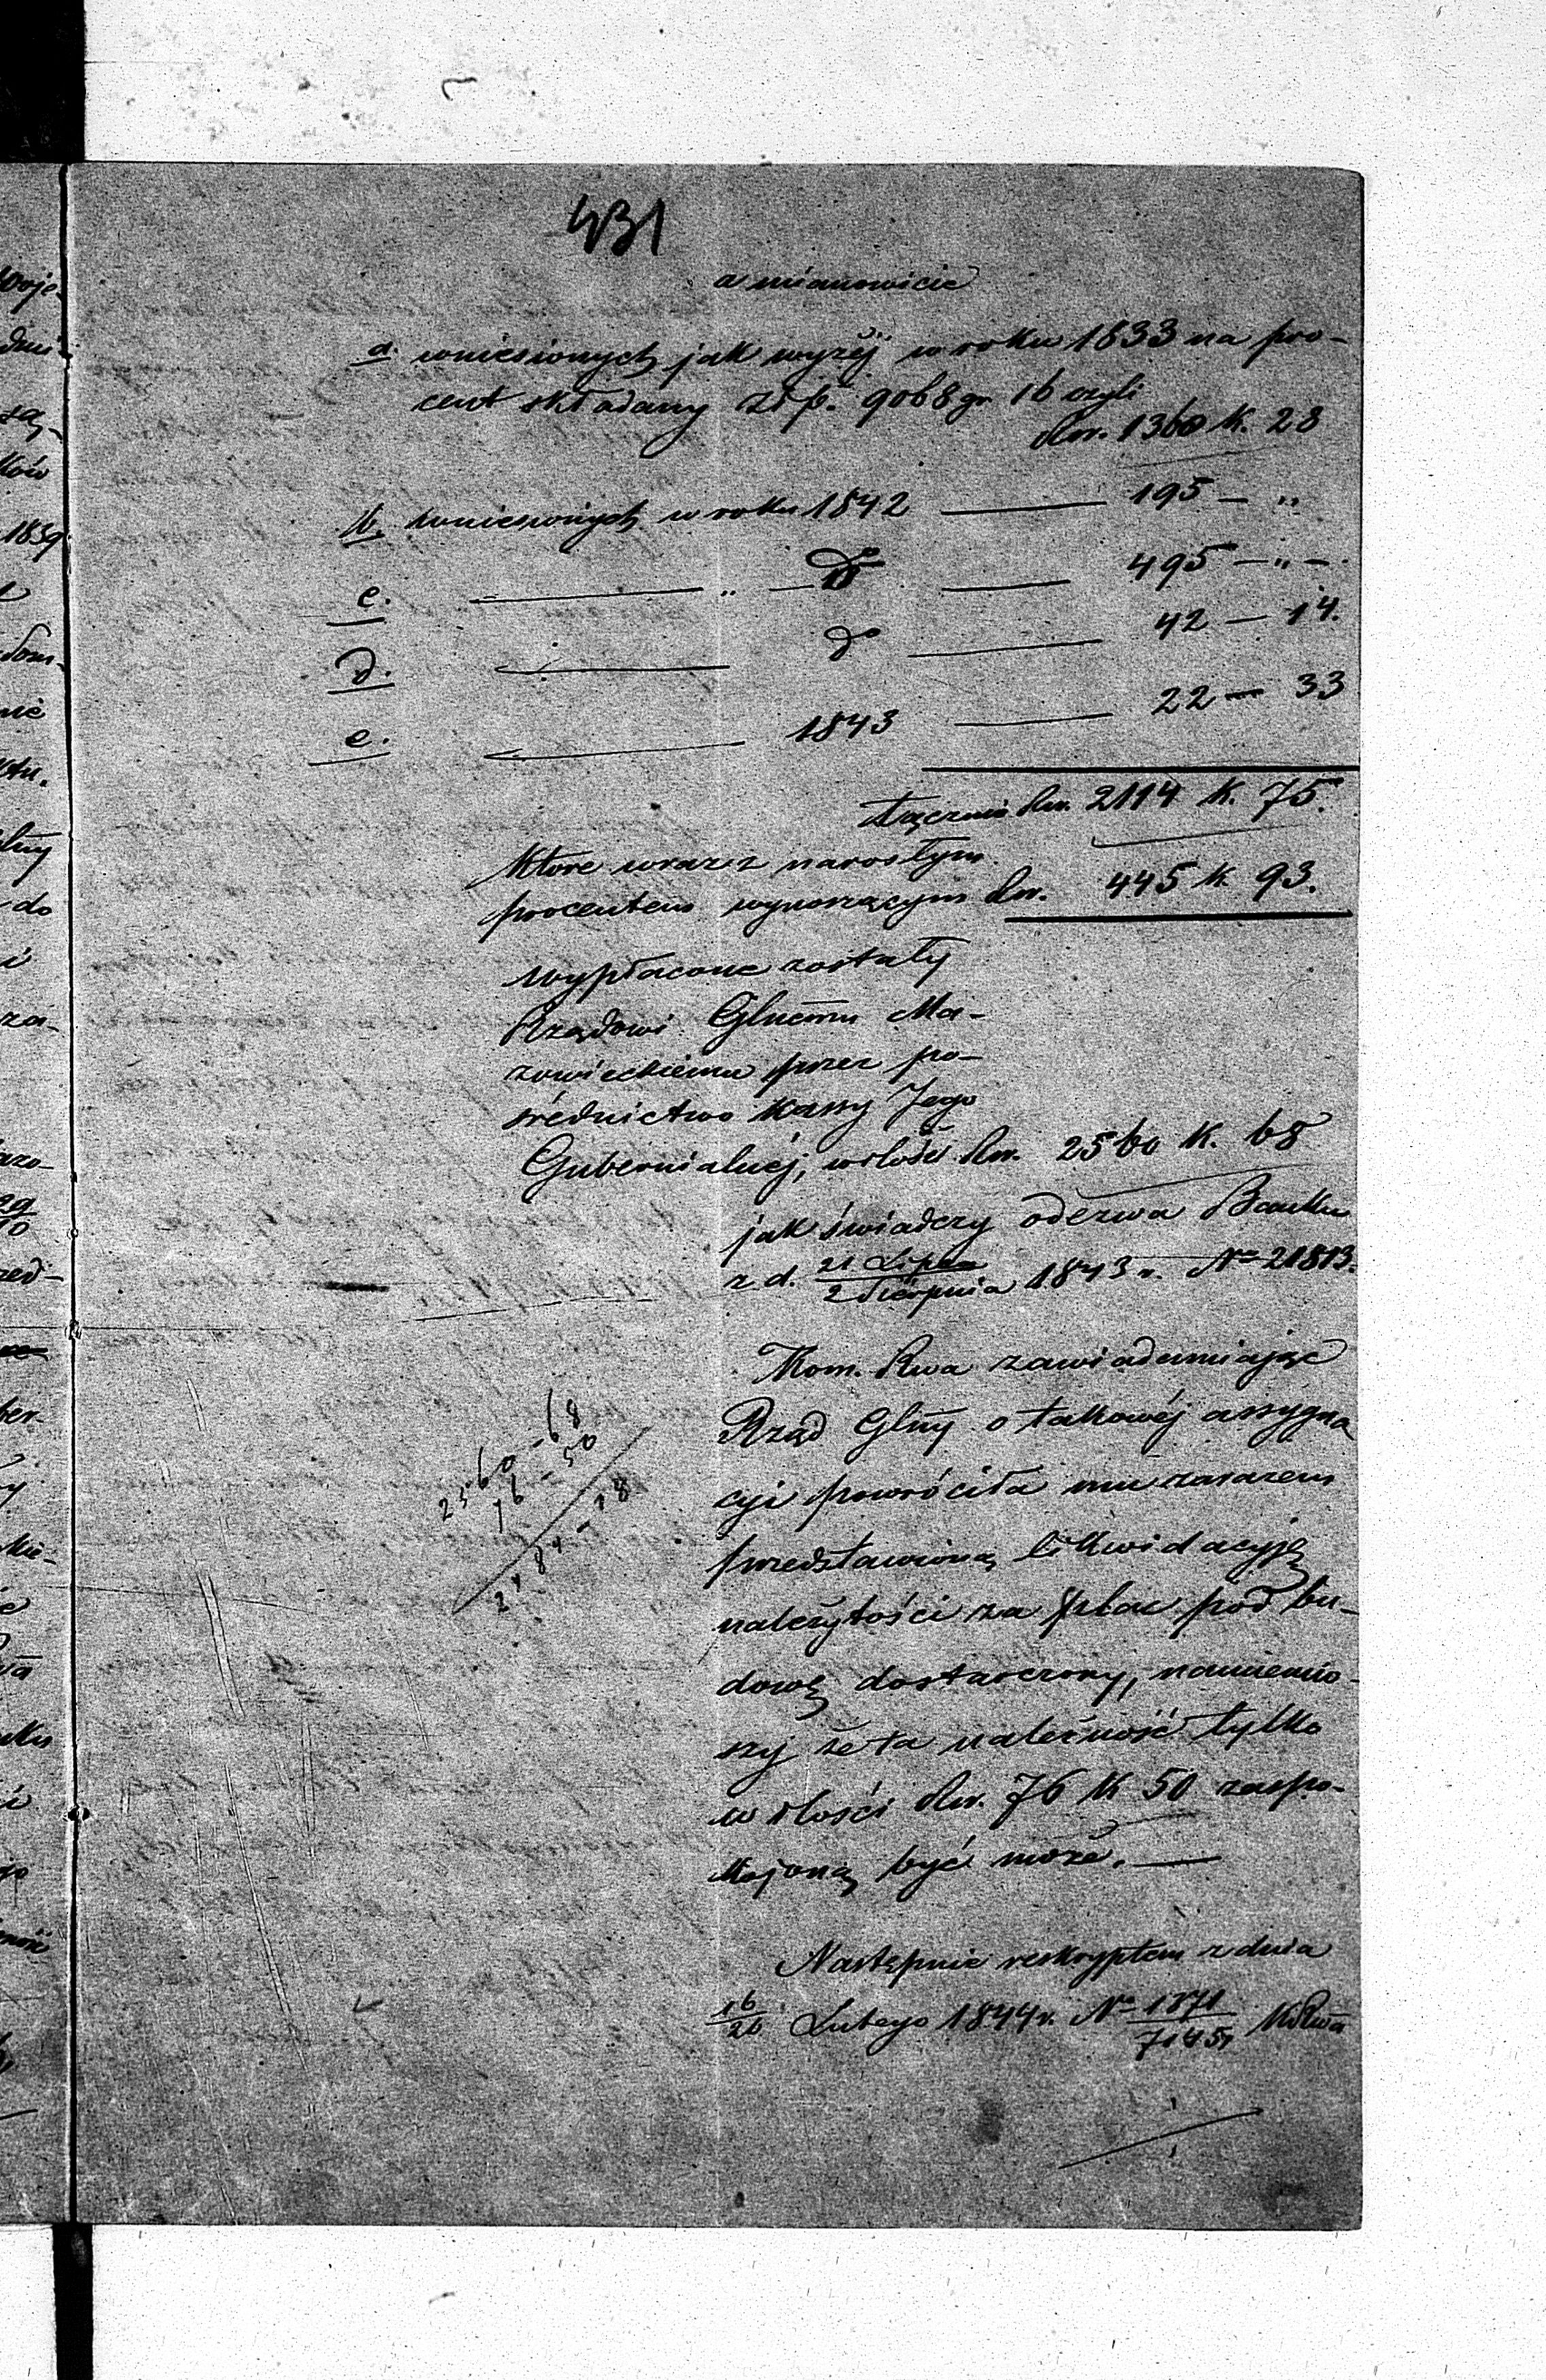 431
a mianowicie
a. wniesionych jak wyżéj w roku 1833 na pro-
cent składany Złp. 9068 gr. 16 czyli
Rsr. 1360 K. 28
b. wniesionych w roku 1842 — 195 — "
c. — " — do — 495 — " —
d. — do — 42 — 14.
e. — 1843 — 22 — 33
Łącznie Rsr. 2114 K. 75.
które wraz z narosłym
procentem wynoszącym Rsr. 445 K. 93.
wypłacone zostały
Rządowi Glnemu Ma-
zowieckiemu przez po-
średnictwo Kassy Jego
Gubernialnéj, w ilości Rsr. 2560 K. 68
jak świadczy odezwa Banku
z d. 21 Lipca / 2 Sierpnia 1843 r. No 21813.
Kom. Rwa zawiadamiając
Rząd Glny o takowéj assygna
cyi powróciła mu zarazem
przedstawioną likwidacyję
należytości za plac pod bu-
dowę dostarczony, nadmienio-
szy że ta należność tylko
w ilości Rsr. 76 K 50 zaspo-
kojoną być może. —
Następnie reskryptem z dnia
16/28 Lutego 1844 r. No 1871/7145 KRwa
2560 - 68
76 - 50
2484 - 18
Woje-
dni
ków
1839
nie
Glny
do
i
za-
29
10
zed-
ber-